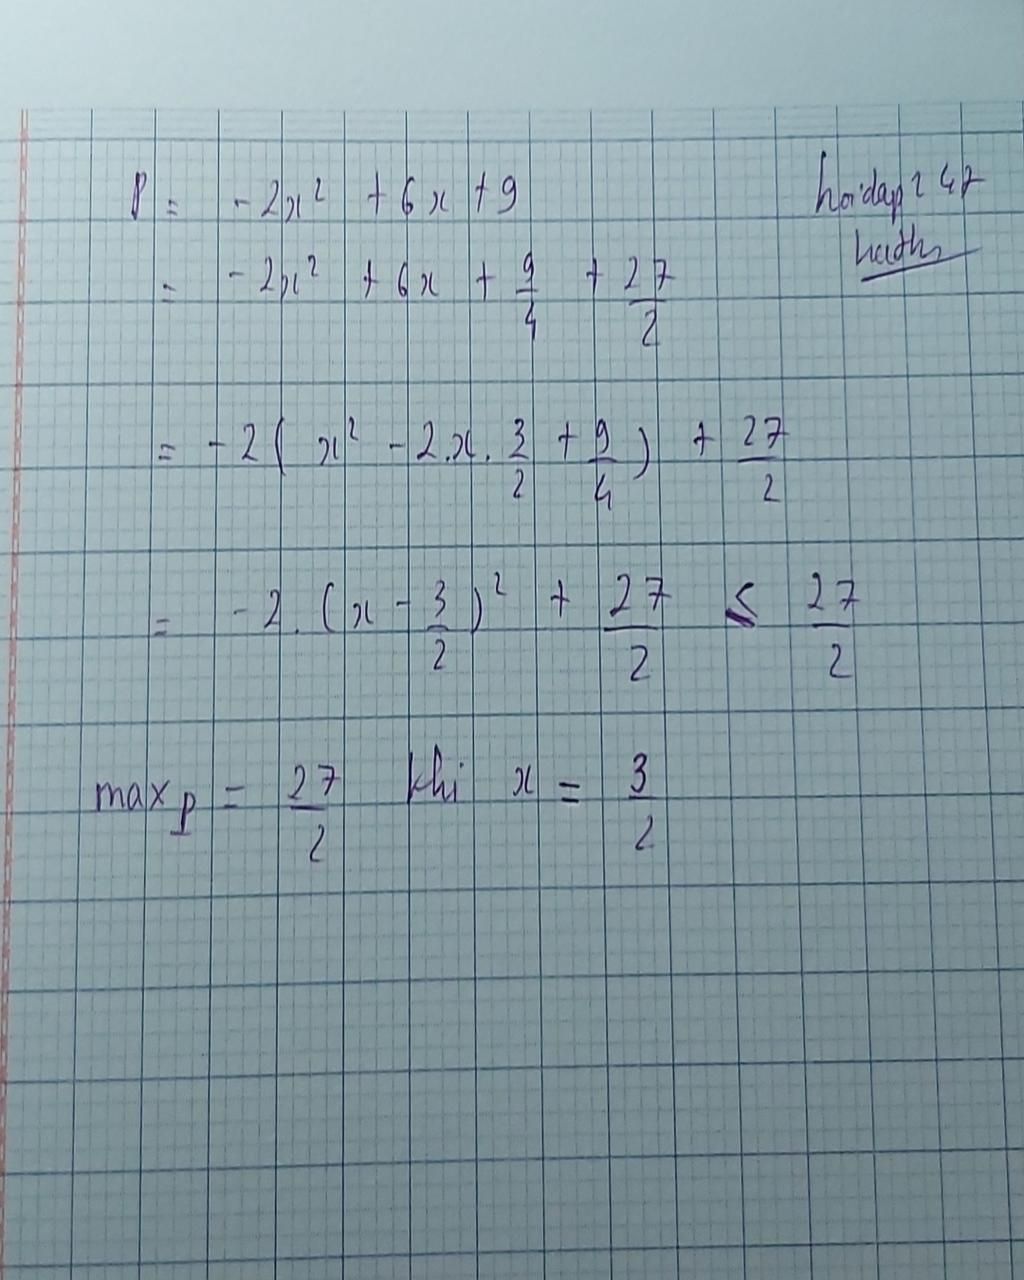 P = -2x² + 6x + 9
= -2x² + 6x + 9/4 + 27/2
= -2( x² - 2.x. 3/2 + 9/4 ) + 27/2
= -2. (x - 3/2)² + 27/2 ≤ 27/2
max P = 27/2 khi x = 3/2
hoidap247